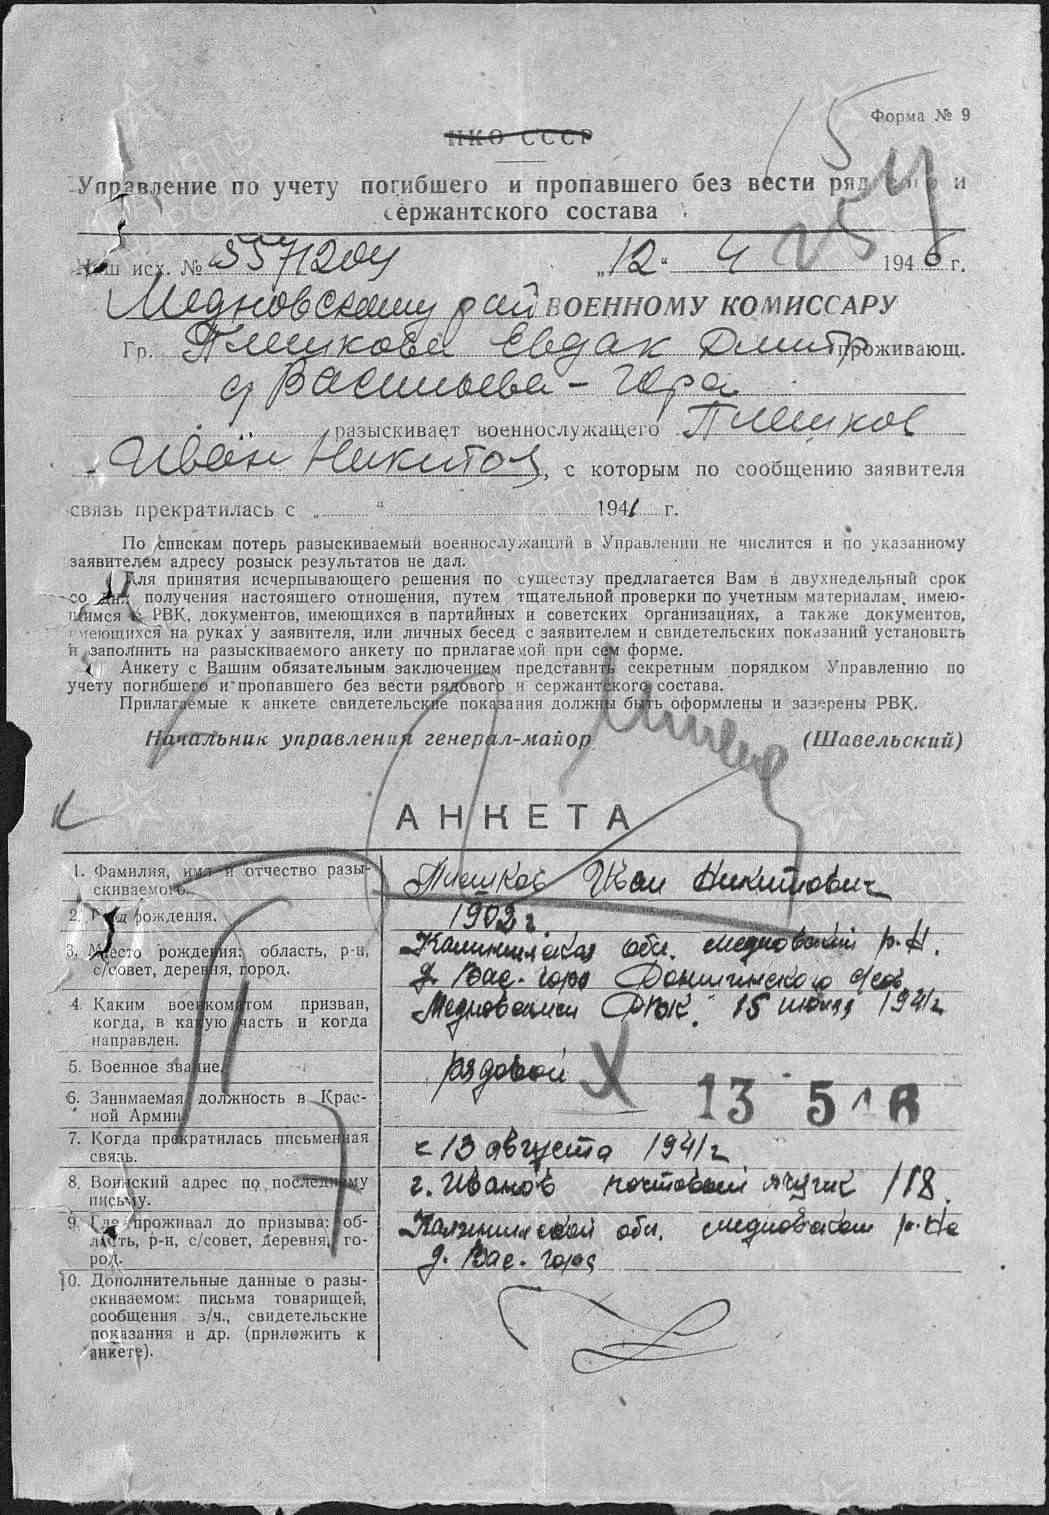 Форма № 9
НКО СССР
Управление по учету погибшего и пропавшего без вести рядового и
сержантского состава
Наш исх. № 55/1204 „12“ 4 1946 г.
Медновскому рай ВОЕННОМУ КОМИССАРУ
Гр. Плешкова Евдак Дмитр проживающ.
д Васильева-гора
разыскивает военнослужащего Плешков
Иван Никитов, с которым по сообщению заявителя
связь прекратилась с „ “ 1941 г.
По спискам потерь разыскиваемый военнослужащий в Управлении не числится и по указанному
заявителем адресу розыск результатов не дал.
Для принятия исчерпывающего решения по существу предлагается Вам в двухнедельный срок
со дня получения настоящего отношения, путем тщательной проверки по учетным материалам, имею-
щимся в РВК, документов, имеющихся в партийных и советских организациях, а также документов,
имеющихся на руках у заявителя, или личных бесед с заявителем и свидетельских показаний установить
и заполнить на разыскиваемого анкету по прилагаемой при сем форме.
Анкету с Вашим обязательным заключением представить секретным порядком Управлению по
учету погибшего и пропавшего без вести рядового и сержантского состава.
Прилагаемые к анкете свидетельские показания должны быть оформлены и заверены РВК.
Начальник управления генерал-майор (Шавельский)
АНКЕТА
1. Фамилия, имя и отчество разы-
скиваемого. Плешков Иван Никитович
2. Год рождения. 1902 г
3. Место рождения: область, р-н, Калининская обл. медновский р-н.
с/совет, деревня, город. д. Вас. гора
4. Каким военкоматом призван, Медновским РВК. 15 июля 1941г
когда, в какую часть и когда
направлен.
5. Военное звание. рядовой
6. Занимаемая должность в Крас-
ной Армии. 13 5
7. Когда прекратилась письменная с 13 августа 1941г
связь.
8. Воинский адрес по последнему г. Иванов почтовый ящик 118.
письму.
9. Где проживал до призыва: об- Калининской обл. медновском р-не
ласть, р-н, с/совет, деревня, го- д. Вас. гора
род.
10. Дополнительные данные о разы-
скиваемом: письма товарищей,
сообщения з/ч., свидетельские
показания и др. (приложить к
анкете).